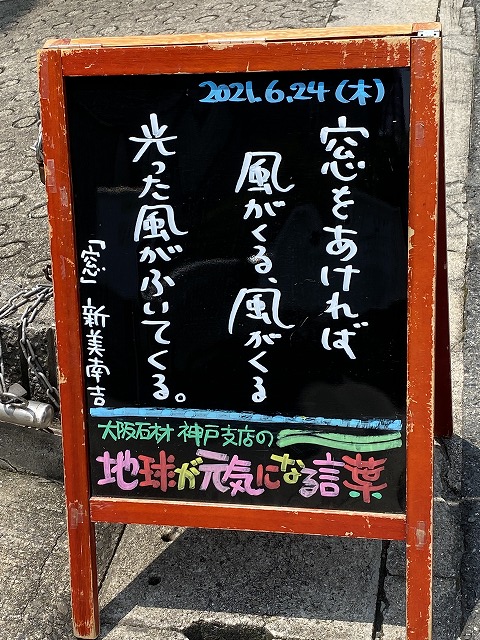 2021.6.24(木)
窓をあければ
風がくる、風がくる
光った風がふいてくる。
「窓」 新美南吉
大阪石材 神戸支店の
地球が元気になる言葉